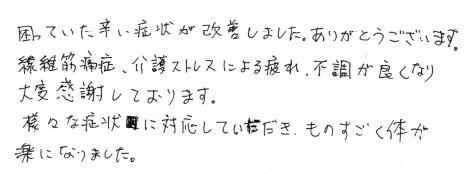 困っていた辛い症状が改善しました。ありがとうございます。
線維筋痛症、介護ストレスによる疲れ、不調が良くなり
大変感謝しております。
様々な症状に対応していただき、ものすごく体が
楽になりました。